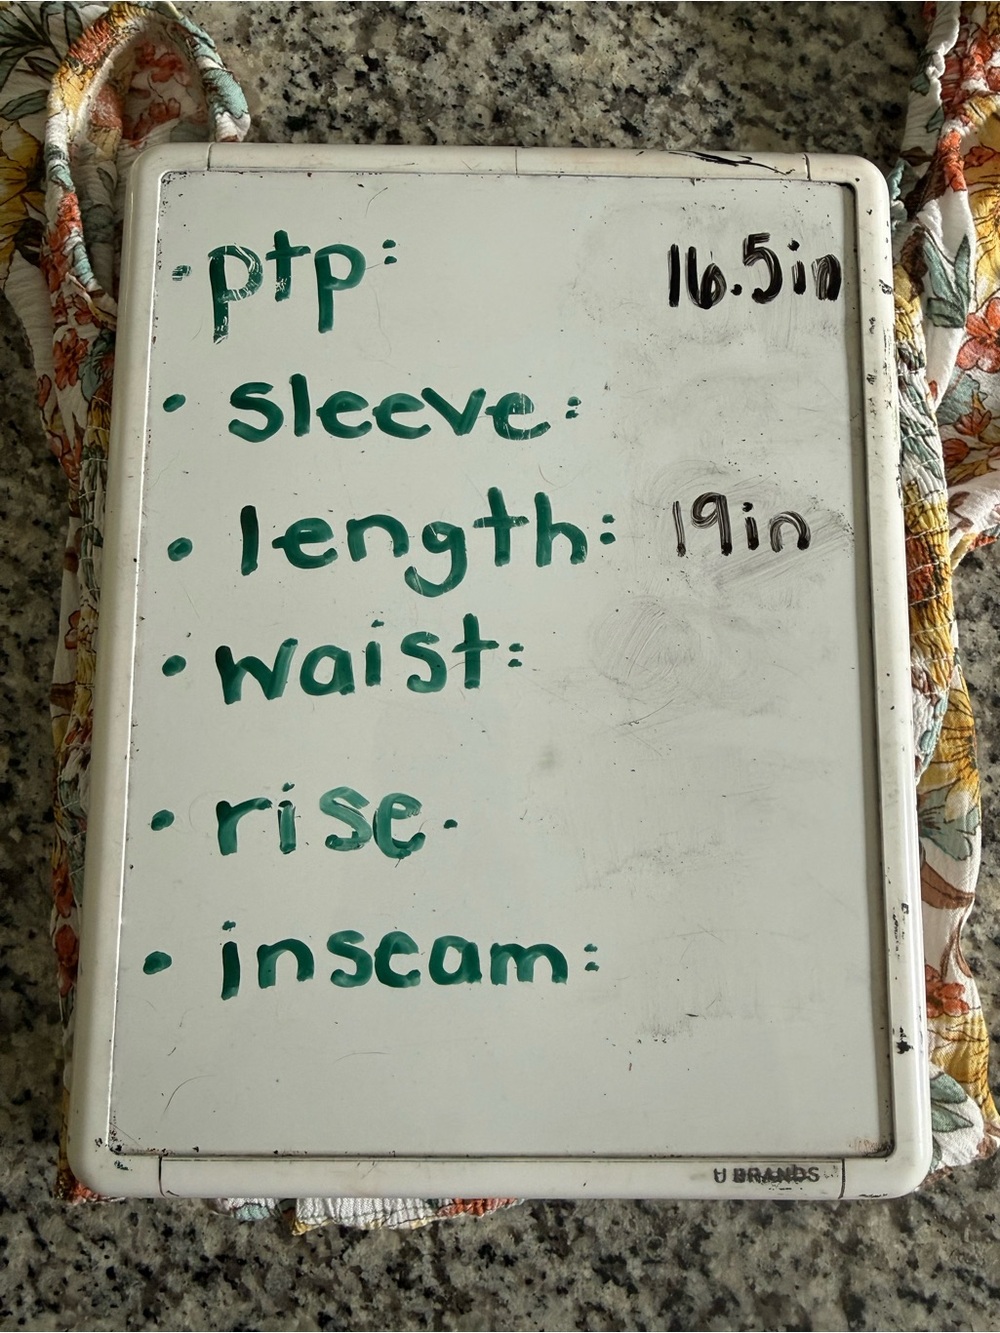 • ptp: 16.5in
• sleeve:
• length: 19in
• waist:
• rise.
• inseam:
U BRANDS